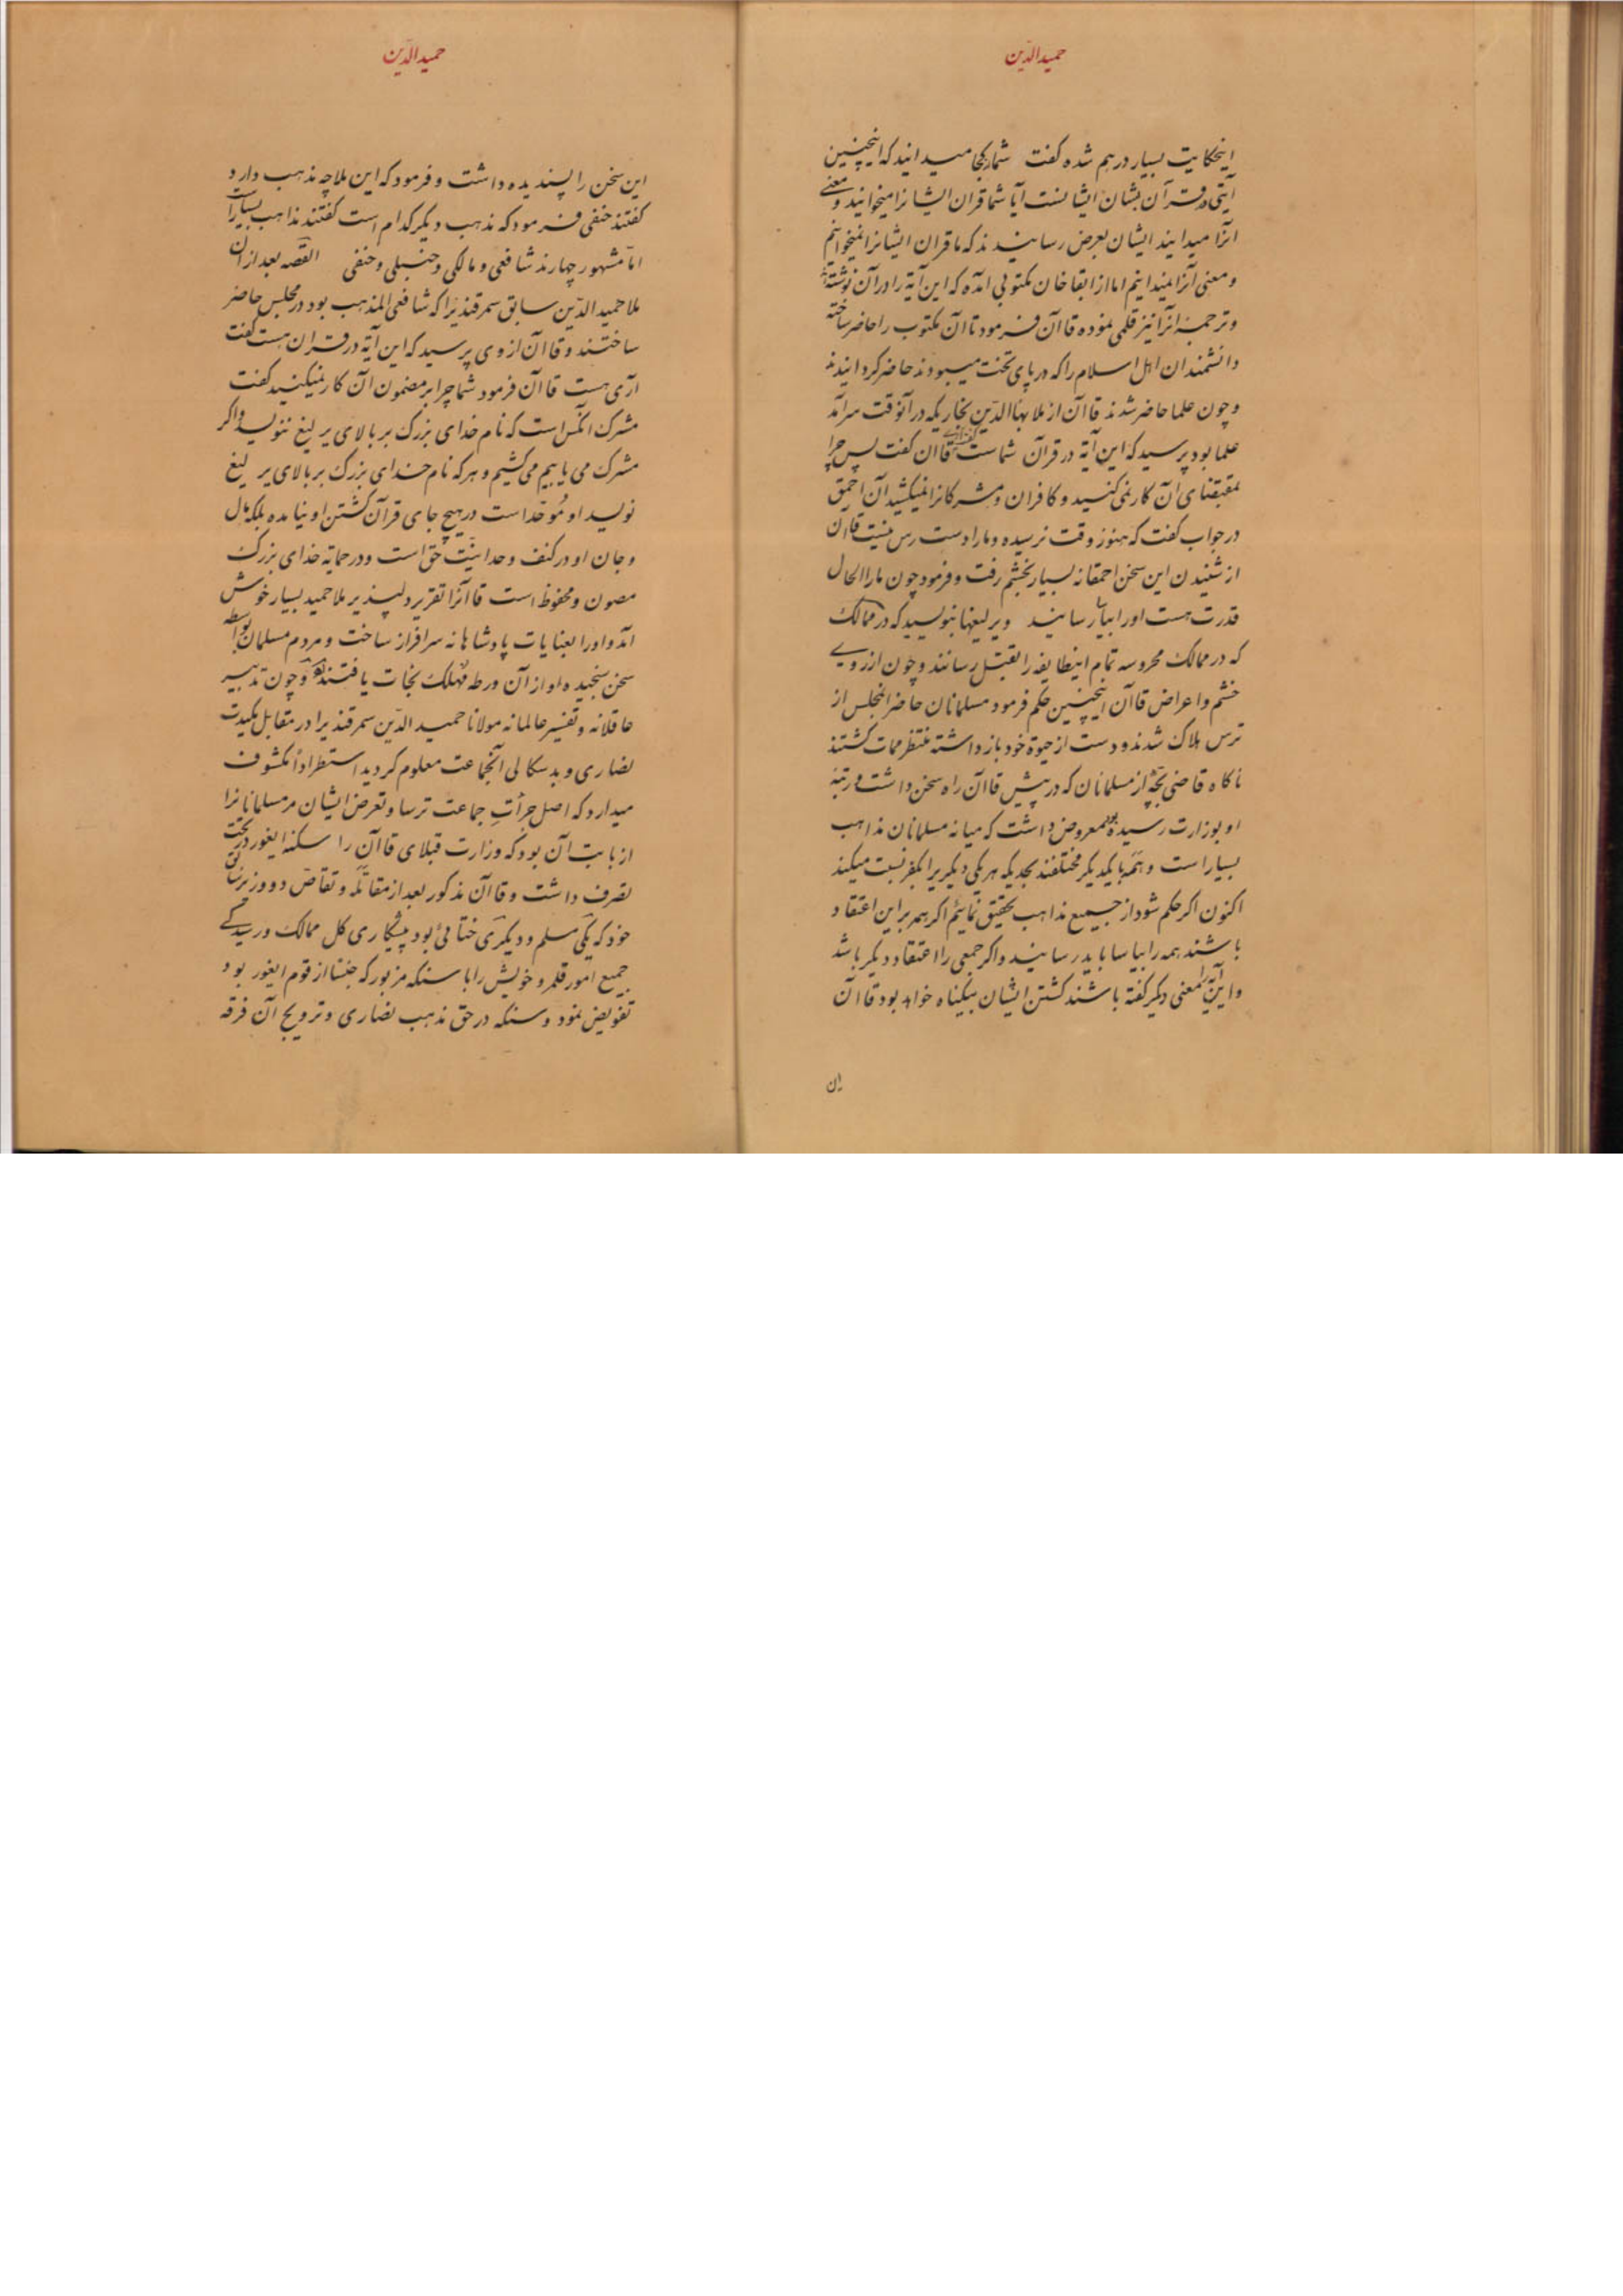 حمیدالدّین
اینحکایت بسیار درهم شده گفت شما بکجا میدانید که اینچنین
آیتی در قرآن بشان ایشانست آیا شما قران ایشانرا میخوانید و معنی
انرا میدانید ایشان بعرض رسانیدند که ما قران ایشانرا نمیخوانیم
و معنی آنرا نمیدانیم اما از ابقا خان مکتوبی آمده که این آیة را در آن نوشتۀ
و ترجمۀ انرا نیز قلمی نموده قاآن فرمود تا آن مکتوب را حاضر ساخته
دانشمندان اهل اسلام را که در پای تخت میبودند حاضر کردانیدند
و چون علما حاضر شدند قاآن از ملا بهاالدّین بخاریکه در آنوقت سرآمد
علما بود پرسید که این آیة در قرآن شماست گفت آری قاآن گفت پس چرا
بمقتضای آن کار نمی کنید و کافران و مشرکانرا نمیکشید آن احمق
در جواب گفت که هنوز وقت نرسیده و ما را دست رس نیست قاآن
از شنیدن این سخن احمقانه بسیار بخشم رفت و فرمود چون ما را الحال
قدرت هست او را بیاسا رسانید و یرلیغها بنویسید که در ممالک
که در ممالک محروسه تمام اینطایفه را بقتل رسانند و چون از روی
خشم و اعراض قاآن اینچنین حکم فرمود مسلمانان حاضر المجلس از
ترس هلاک شدند و دست از حیوة خود باز داشته منتظر ممات کشتند
ناکاه قاضی بچّه از مسلمانان که در پیش قاآن راه سخن داشت و رتبۀ
او بوزارت رسیده بود معروض داشت که میانه مسلمانان مذاهب
بسیار است و همه با یکدیکر مختلفند بحدیکه هر یکی دیکریرا بکفر نسبت میکند
اکنون اکر حکم شود از جمیع مذاهب تحقیق نمائیم اکر همه براین اعتقاد
باشند همه را بیاسا باید رسانید و اکر جمعی را اعتقاد دیکر باشد
و این آیة را بمعنی دیکر کفته باشند کشتن ایشان بیکناه خواهد بود قاآن
این
حمیدالدّین
این سخن را پسندیده داشت و فرمود که این ملا چه مذهب دارد
کفتند حنفی فرمود که مذهب دیکر کدام است کفتند مذاهب بسیار است
امّا مشهور چهارند شافعی و مالکی و حنبلی و حنفی القصّه بعد از آن
ملا حمید الدّین سابق سمرقندیرا که شافعی المذهب بود در مجلس حاضر
ساختند و قاآن از وی پرسید که این آیة در قرآن هست کفت
آری هست قاآن فرمود شما چرا بر مضمون آن کار نمیکنید کفت
مشرک آنکس است که نام خدای بزرک بر بالای یرلیغ ننویسد و اکر
مشرک می یابیم می کشیم و هر که نام خدای بزرک بر بالای یرلیغ
نویسد او مُوحّد است در هیچ جای قرآن کشتن او نیامده بلکه مال
و جان او در کنف وحدانیّت حق است و در حمایة خدای بزرک
مصون و محفوظ است قاآنرا تقریر دلپذیر ملا حمید بسیار خوش
آمد و او را بعنایات پادشاهانه سرافراز ساخت و مردم مسلمان بواسطۀ
سخن سنجیده او از آن ورطه مهلک نجات یافتند و چون تدبیر
عاقلانه و تفسیر عالمانه مولانا حمید الدّین سمرقندیرا در مقابل مکیدت
نصاری و بدسکالی آنجماعت معلوم کردید استطراداً مکشوف
میدارد که اصل جرأتِ جماعت ترسا و تعرض ایشان مر مسلمانانرا
از بابت آن بود که وزارت قبلای قاآن را سنکۀ ایغور در تحت
تصرف داشت و قاآن مذکور بعد از مقاتله و تقاصّ دو وزیر سابق
خود که یکی مسلم و دیکری ختائی بود پیشکاری کل ممالک و رسیدکی
جمیع امور قلمرو خویش را با سنکه مزبور که جنسا از قوم ایغور بود
تفویض نمود و سنکه در حق مذهب نصاری و ترویج آن فرقه